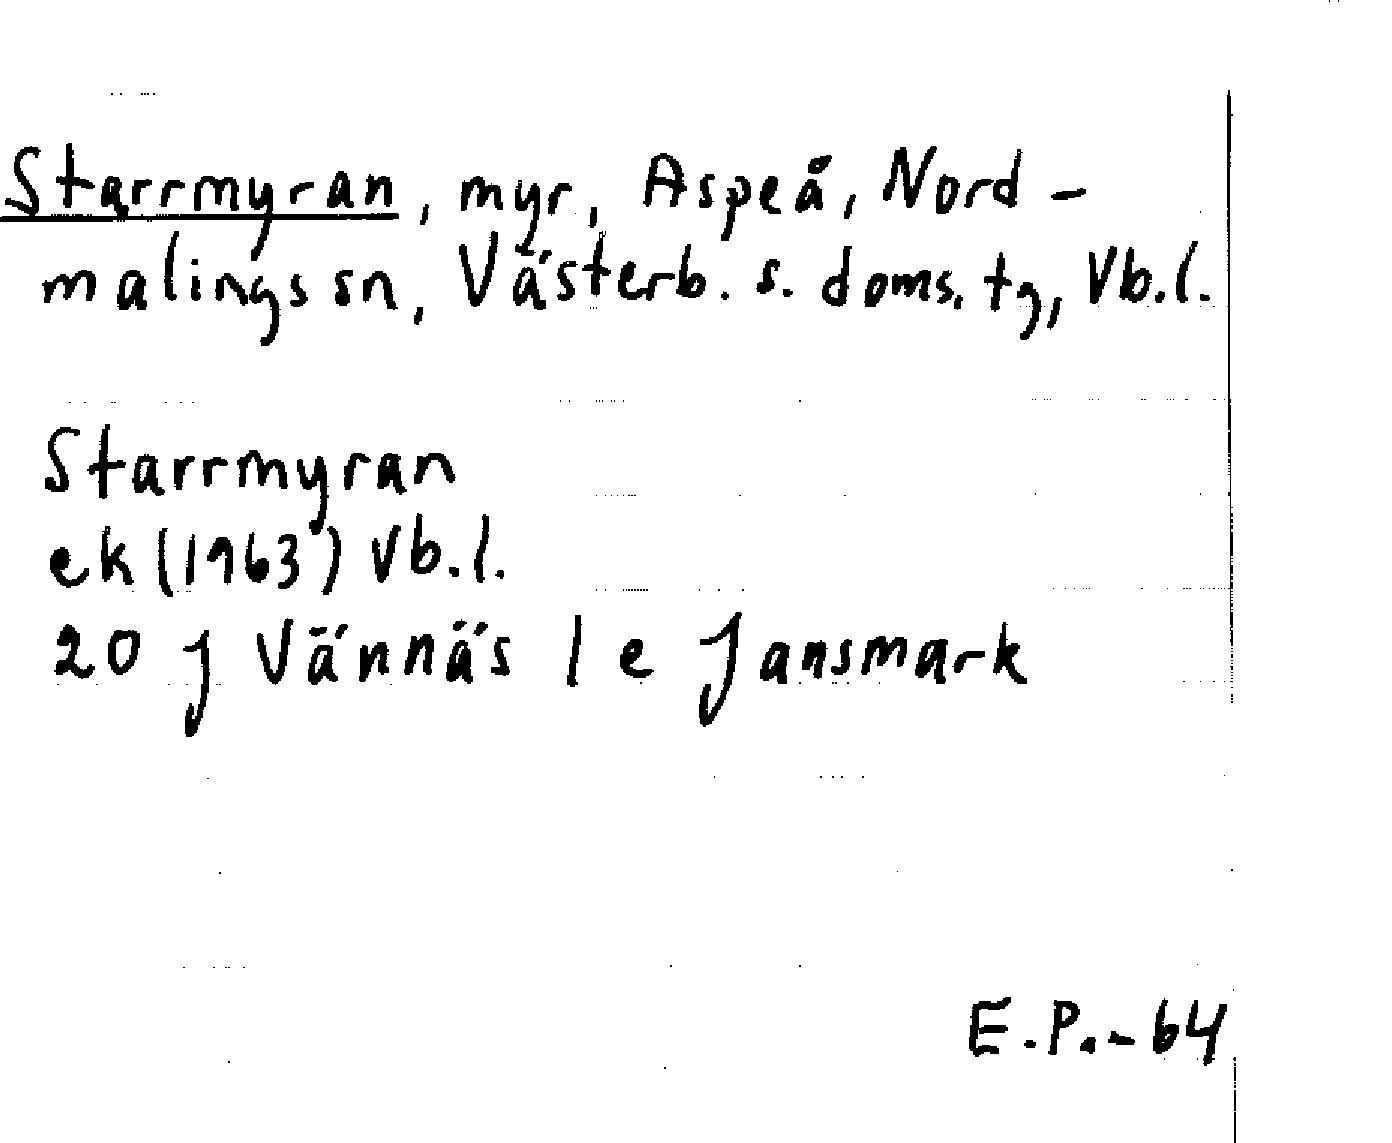 Starrmyran, myr, Aspeå, Nord-
malings sn, Västerb. s. doms. tg, Vb.l.
Starrmyran
ek (1963) Vb.l.
20 J Vännäs 1 e Jansmark
E.P.-64